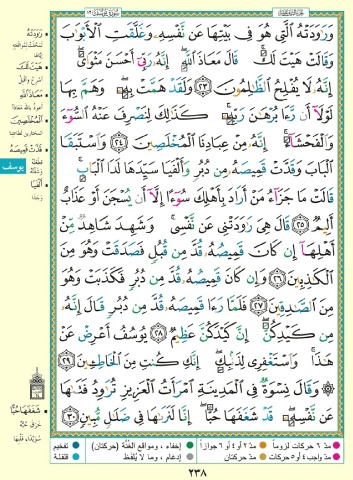 سُورَةُ يُوسُفَ ١٢
وَرَٰوَدَتْهُ ٱلَّتِى هُوَ فِى بَيْتِهَا عَن نَّفْسِهِۦ وَغَلَّقَتِ ٱلْأَبْوَٰبَ
وَقَالَتْ هَيْتَ لَكَ ۚ قَالَ مَعَاذَ ٱللَّهِ ۖ إِنَّهُۥ رَبِّىٓ أَحْسَنَ مَثْوَاىَ ۖ
إِنَّهُۥ لَا يُفْلِحُ ٱلظَّٰلِمُونَ ٢٣ وَلَقَدْ هَمَّتْ بِهِۦ ۖ وَهَمَّ بِهَا
لَوْلَآ أَن رَّءَا بُرْهَٰنَ رَبِّهِۦ ۚ كَذَٰلِكَ لِنَصْرِفَ عَنْهُ ٱلسُّوٓءَ
وَٱلْفَحْشَآءَ ۚ إِنَّهُۥ مِنْ عِبَادِنَا ٱلْمُخْلَصِينَ ٢٤ وَٱسْتَبَقَا
ٱلْبَابَ وَقَدَّتْ قَمِيصَهُۥ مِن دُبُرٍ وَأَلْفَيَا سَيِّدَهَا لَدَا ٱلْبَابِ ۚ
قَالَتْ مَا جَزَآءُ مَنْ أَرَادَ بِأَهْلِكَ سُوٓءًا إِلَّآ أَن يُسْجَنَ أَوْ عَذَابٌ
أَلِيمٌ ٢٥ قَالَ هِىَ رَٰوَدَتْنِى عَن نَّفْسِى ۚ وَشَهِدَ شَاهِدٌ مِّنْ
أَهْلِهَآ إِن كَانَ قَمِيصُهُۥ قُدَّ مِن قُبُلٍ فَصَدَقَتْ وَهُوَ مِنَ
ٱلْكَٰذِبِينَ ٢٦ وَإِن كَانَ قَمِيصُهُۥ قُدَّ مِن دُبُرٍ فَكَذَبَتْ وَهُوَ
مِنَ ٱلصَّٰدِقِينَ ٢٧ فَلَمَّا رَءَا قَمِيصَهُۥ قُدَّ مِن دُبُرٍ قَالَ إِنَّهُۥ
مِن كَيْدِكُنَّ ۖ إِنَّ كَيْدَكُنَّ عَظِيمٌ ٢٨ يُوسُفُ أَعْرِضْ عَنْ
هَٰذَا ۚ وَٱسْتَغْفِرِى لِذَنۢبِكِ ۖ إِنَّكِ كُنتِ مِنَ ٱلْخَاطِـِٔينَ ٢٩
۞ وَقَالَ نِسْوَةٌ فِى ٱلْمَدِينَةِ ٱمْرَأَتُ ٱلْعَزِيزِ تُرَٰوِدُ فَتَىٰهَا
عَن نَّفْسِهِۦ ۖ قَدْ شَغَفَهَا حُبًّا ۖ إِنَّا لَنَرَىٰهَا فِى ضَلَٰلٍ مُّبِينٍ ٣٠
رَٰوَدَتْهُ
هَيْتَ لَكَ
مَعَاذَ ٱللَّهِ
ٱلْمُخْلَصِينَ
قَدَّتْ قَمِيصَهُ
يوسف
أَلْفَيَا
وَجَدَا
شَغَفَهَا حُبًّا
مدّ ٦ حركات لزوماً
مدّ ٢ أو ٤ أو ٦ جوازاً
إخفاء، ومواقع الغُنَّة (حركتان)
تفخيم
مدّ واجب ٤ أو ٥ حركات
مدّ حركتان
إدغام، وما لا يُلفظ
قلقلة
٢٣٨